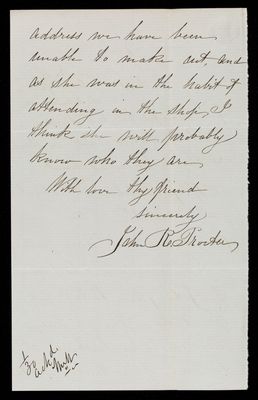 address we have been
unable to make out, and
as she was in the habit of
attending in the shop, I
think she will probably
know who they are
With love thy friend
sincerely
John R Procter
1/30
ackd